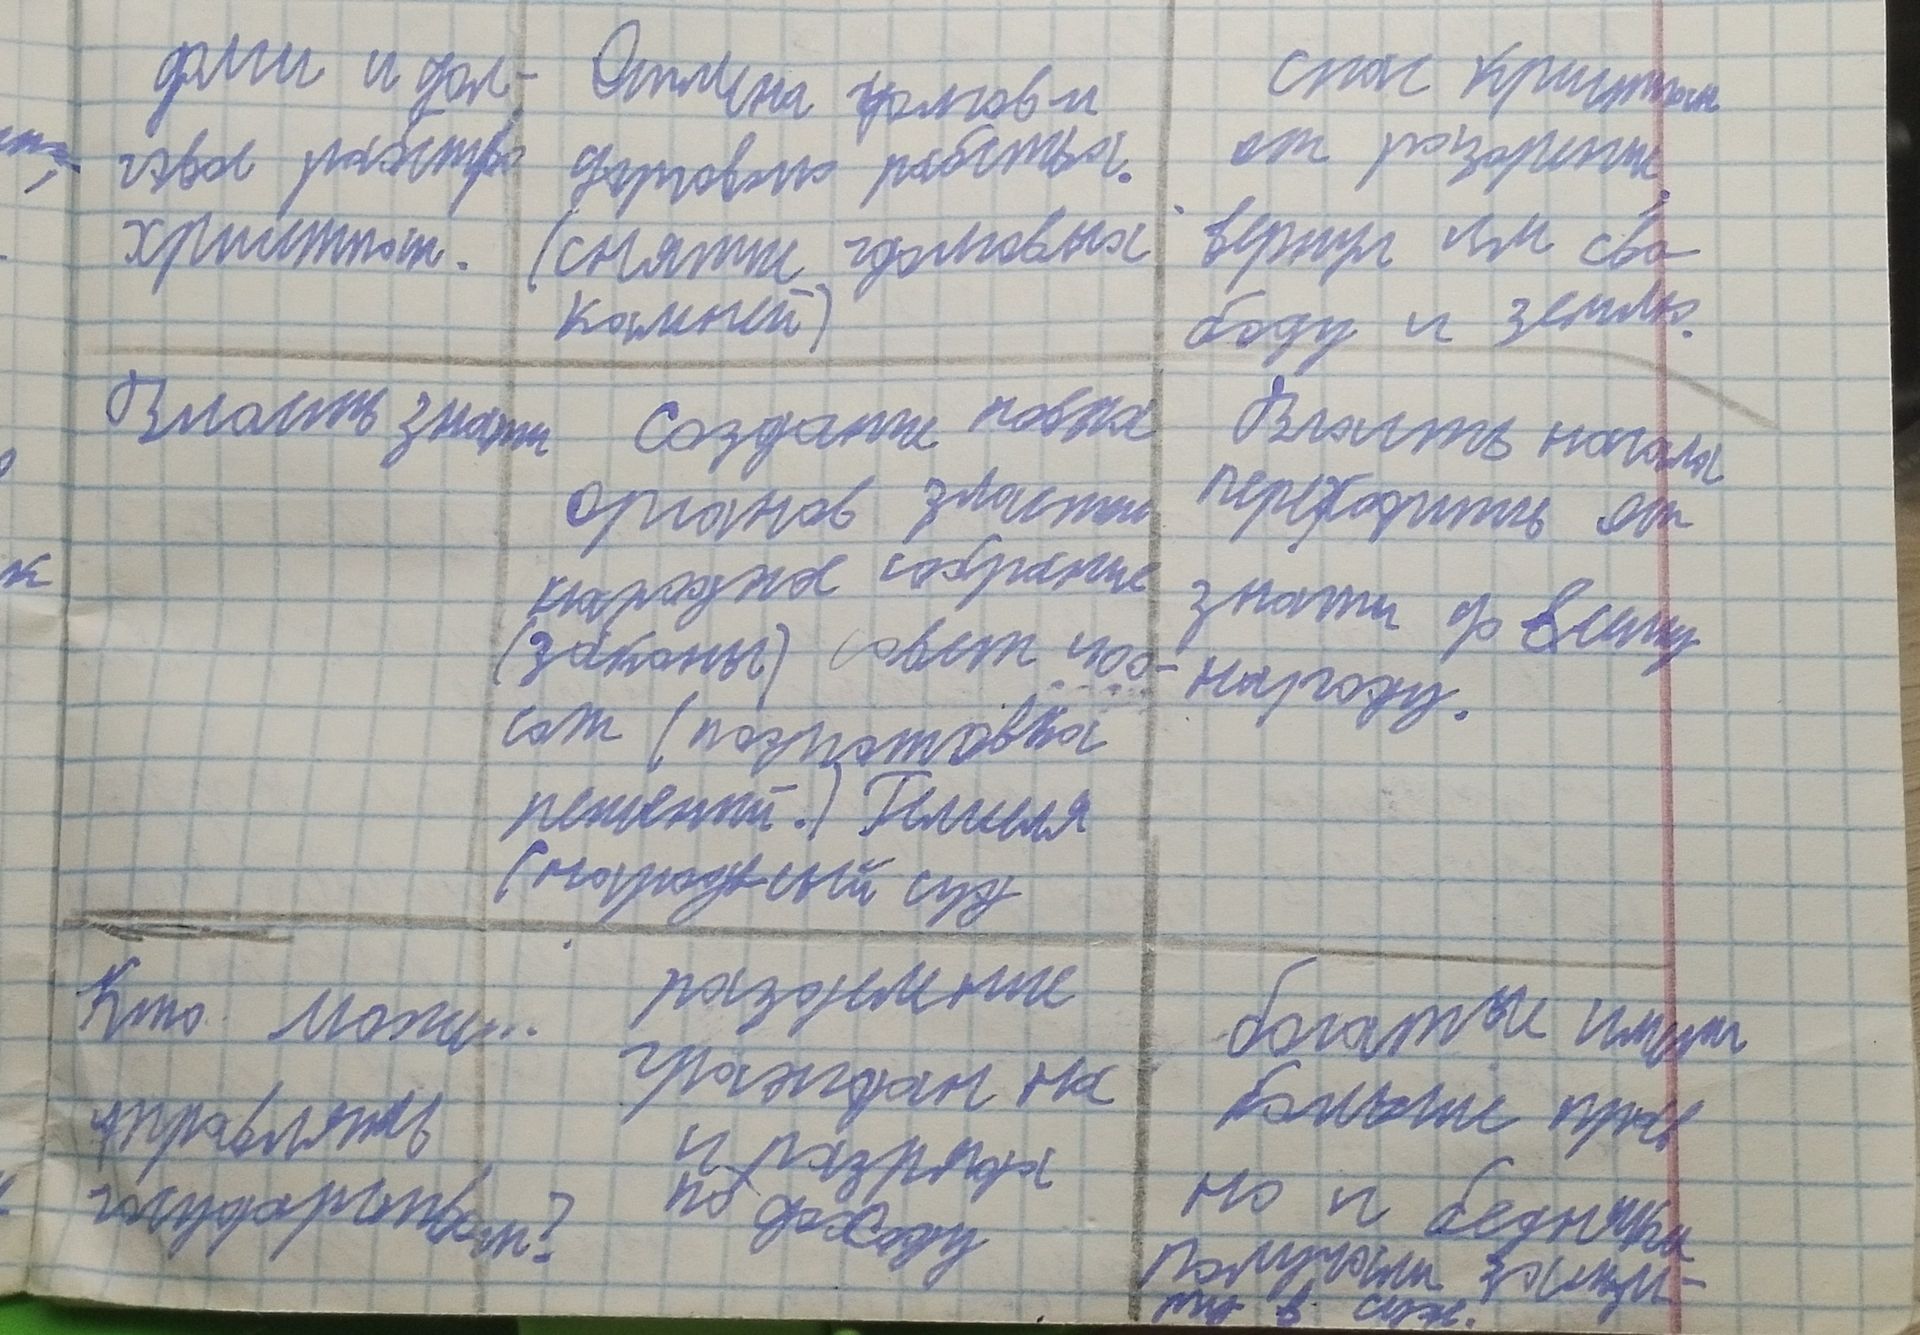 долги и дол-
говое рабство
христиан.
Отмена долгов и
долгового рабства.
(снятие долговых
камней)
спас христиан
от разорения,
вернул им сво
боду и землю.
Власть знати
Создание новых
органов власти
народное собрание
(законы) совет 400-
сот (подготовка
решений.) Гелиэя
(народный суд
Власть начала
переходить от
знати ко всему
народу.
Кто может
управлять
государством?
разделение
граждан на
4 разряда
по доходу
богатые имели
больше прав
но и бедняки
получали защи-
ту в